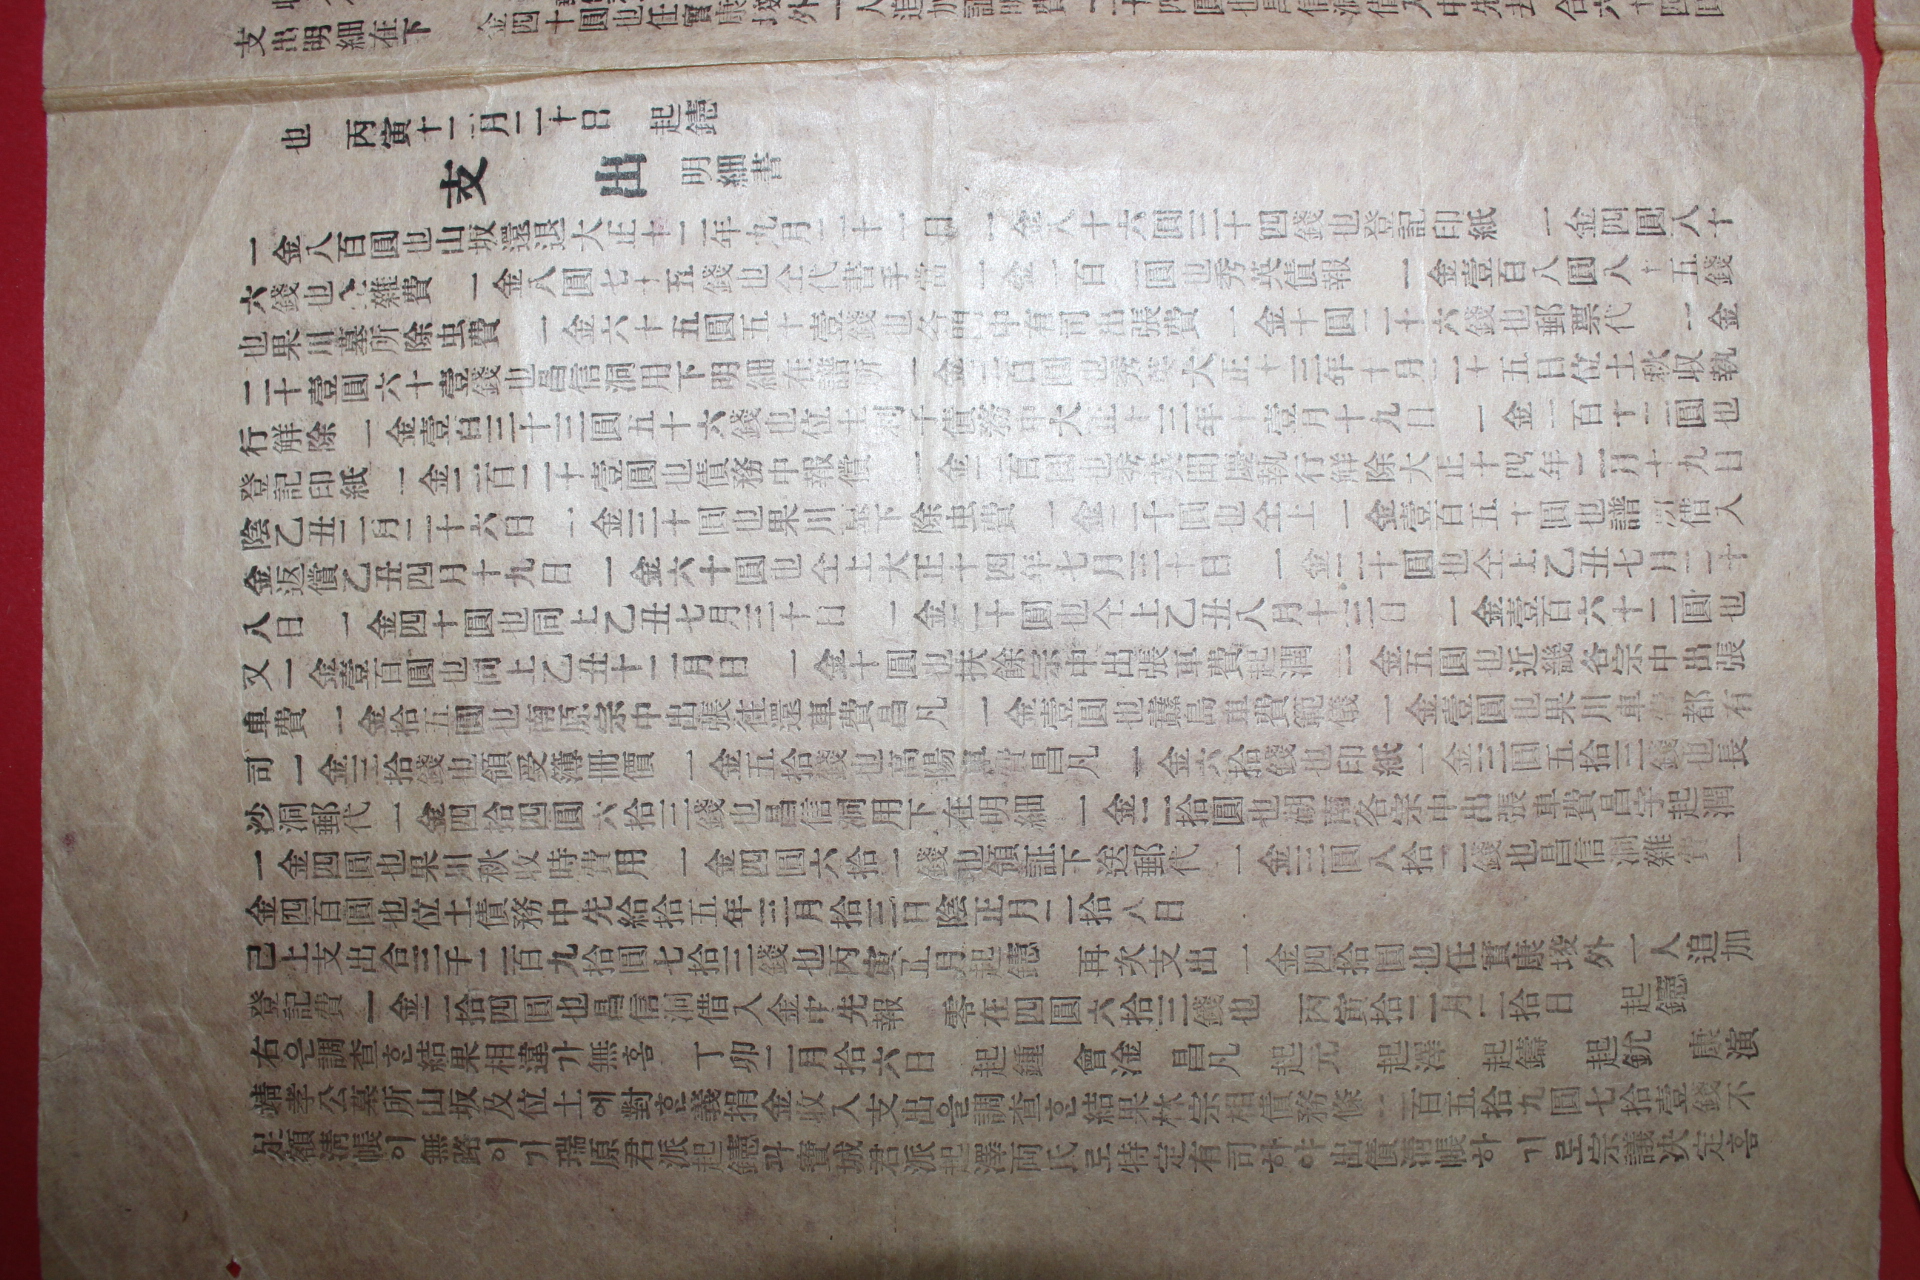 支出明細在下
金四十圓也任實康埈外一人追加証明費
也　丙寅十二月二十日　起鐩
支出 明細書
一金八百圓也山坂還退大正十二年九月二十一日　一金八十六圓三十四錢也登記印紙　一金四圓八十
六錢也仝雜費　一金八圓七十五錢也仝代書手當　一金二百一圓也秀英債報　一金壹百八圓八十五錢
也果川墓所除虫費　一金六十五圓五十壹錢也各門中有司出張費　一金十圓二十六錢也郵票代　一金
二十壹圓六十壹錢也昌信洞用下明細在譜所　一金三百圓也秀英大正十三年十月二十五日位土秋収執
行觧除　一金壹百三十三圓五十六錢也位土利子債務中大正十三年十壹月十九日　一金一百十二圓也
登記印紙　一金二百二十壹圓也債務中報償　一金二百圓也秀英聞慶執行觧除大正十四年二月十九日
陰乙丑二月二十六日　一金三十圓也果川墓下除虫費　一金二十圓也仝上　一金壹百五十圓也譜所借入
金返償乙丑四月十九日　一金六十圓也仝上大正十四年七月三十日　一金二十圓也仝上乙丑七月二十
八日　一金四十圓也同上乙丑七月三十日　一金二十圓也仝上乙丑八月十三日　一金壹百六十二圓也
又一金壹百圓也同上乙丑十二月日　一金十圓也扶餘宗中出張車費起潤　一金五圓也近畿各宗中出張
車費　一金拾五圓也南原宗中出張往還車費昌凡　一金壹圓也纛島車費範儀　一金壹圓也果川車費都有
司　一金三拾錢也領受簿冊價　一金五拾錢也高陽車費昌凡　一金六拾錢也印紙一金三圓五拾三錢也長
沙洞郵代　一金四拾四圓六拾三錢也昌信洞用下在明細　一金二拾圓也湖南各宗中出張車費昌宇起潤
一金四圓也果川秋收時費用　一金四圓六拾二錢也領証下送郵代　一金三圓八拾二錢也昌信洞雜費　一
金四百圓也位土債務中先給拾五年三月拾三日陰正月二拾八日
己上支出合三千二百九拾圓七拾三錢也丙寅正月起鐩　再次支出　一金四拾圓也任實康埈外一人追加
登記費　一金二拾四圓也昌信洞借入金中先報　零在四圓六拾三錢也　丙寅拾二月二拾日　起鐩
右은調査ᄒᆞᆫ結果相違가無홈　丁卯二月拾六日　起鍾　會淦　昌凡　起元　起澤　起鑄　起銃　康演
靖孝公墓所山坂及位土에對ᄒᆞᆫ義捐金收入支出을調査ᄒᆞᆫ結果林宗相債務條二百五拾九圓七拾壹錢不
足額淸帳이無路이기瑞原君派起鐩과寶城君派起澤両氏로特定有司하야出債淸帳하기로宗議決定홈